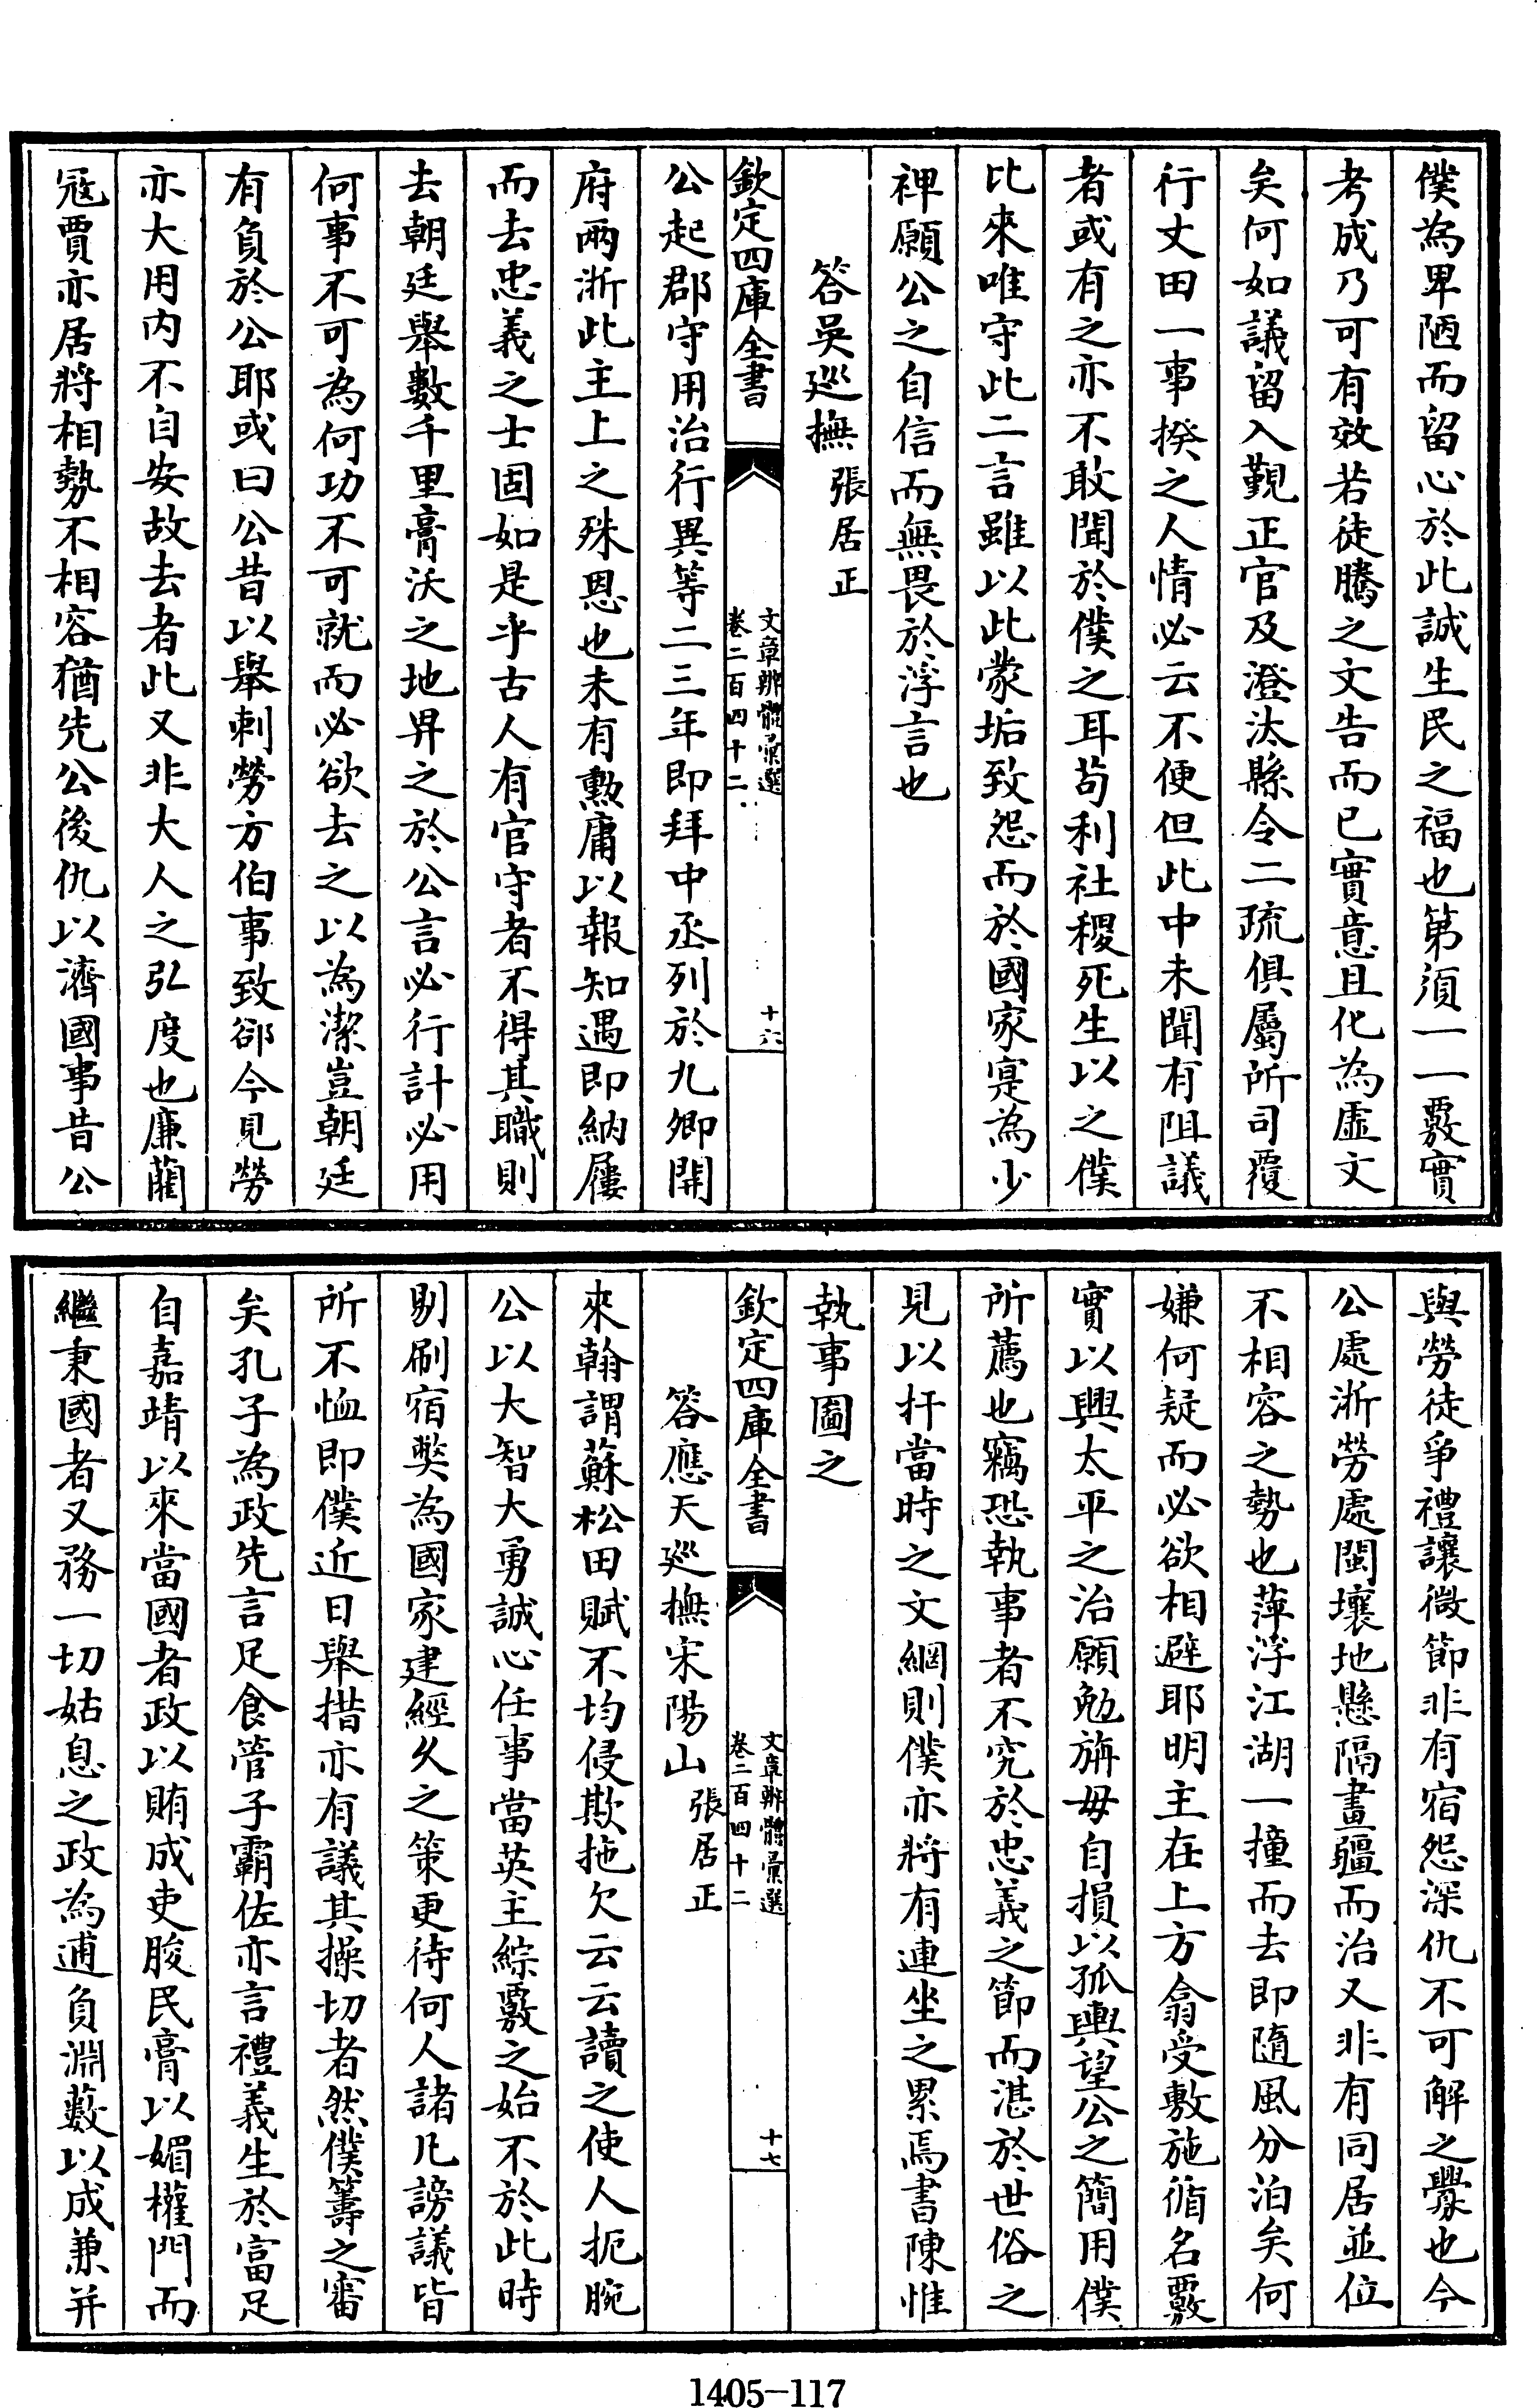 僕為卑陋而留心於此誠生民之福也第須一一覈實
考成乃可有效若徒騰之文告而已實意且化為虛文
矣何如議留入覲正官及澄汰縣令二疏俱屬所司覆
行丈田一事揆之人情必云不便但此中未聞有阻議
者或有之亦不敢聞於僕之耳苟利社稷死生以之僕
比來唯守此二言雖以此蒙垢致怨而於國家寔為少
裨願公之自信而無畏於浮言也
答吳廵撫 張居正
欽定四庫全書 文章辨體彙選 卷二百四十二 十六
公起郡守用治行異等二三年即拜中丞列於九卿開
府兩浙此主上之殊恩也未有勲庸以報知遇即納屨
而去忠義之士固如是乎古人有官守者不得其職則
去朝廷舉數千里膏沃之地畀之於公言必行計必用
何事不可為何功不可就而必欲去之以為潔豈朝廷
有負於公耶或曰公昔以舉刺勞方伯事致郤今見勞
亦大用内不自安故去者此又非大人之弘度也廉藺
冦賈亦居將相勢不相容猶先公後仇以濟國事昔公
與勞徒爭禮讓微節非有宿怨深仇不可解之釁也今
公處浙勞處閩壤地懸隔畫疆而治又非有同居並位
不相容之勢也萍浮江湖一撞而去即隨風分泊矣何
嫌何疑而必欲相避耶明主在上方翕受敷施循名覈
實以興太平之治願勉旃毋自損以孤輿望公之簡用僕
所薦也竊恐執事者不究於忠義之節而湛於世俗之
見以扞當時之文網則僕亦將有連坐之累焉書陳惟
執事圖之
欽定四庫全書 文章辨體彙選 卷二百四十二 十七
答應天廵撫宋陽山 張居正
來翰謂蘇松田賦不均侵欺拖欠云云讀之使人扼腕
公以大智大勇誠心任事當英主綜覈之始不於此時
剔刷宿獘為國家建經久之策更待何人諸凡謗議皆
所不恤即僕近日舉措亦有議其操切者然僕籌之審
矣孔子為政先言足食管子霸佐亦言禮義生於富足
自嘉靖以來當國者政以賄成吏朘民膏以媚權門而
繼秉國者又務一切姑息之政為逋負淵藪以成兼并
1405-117